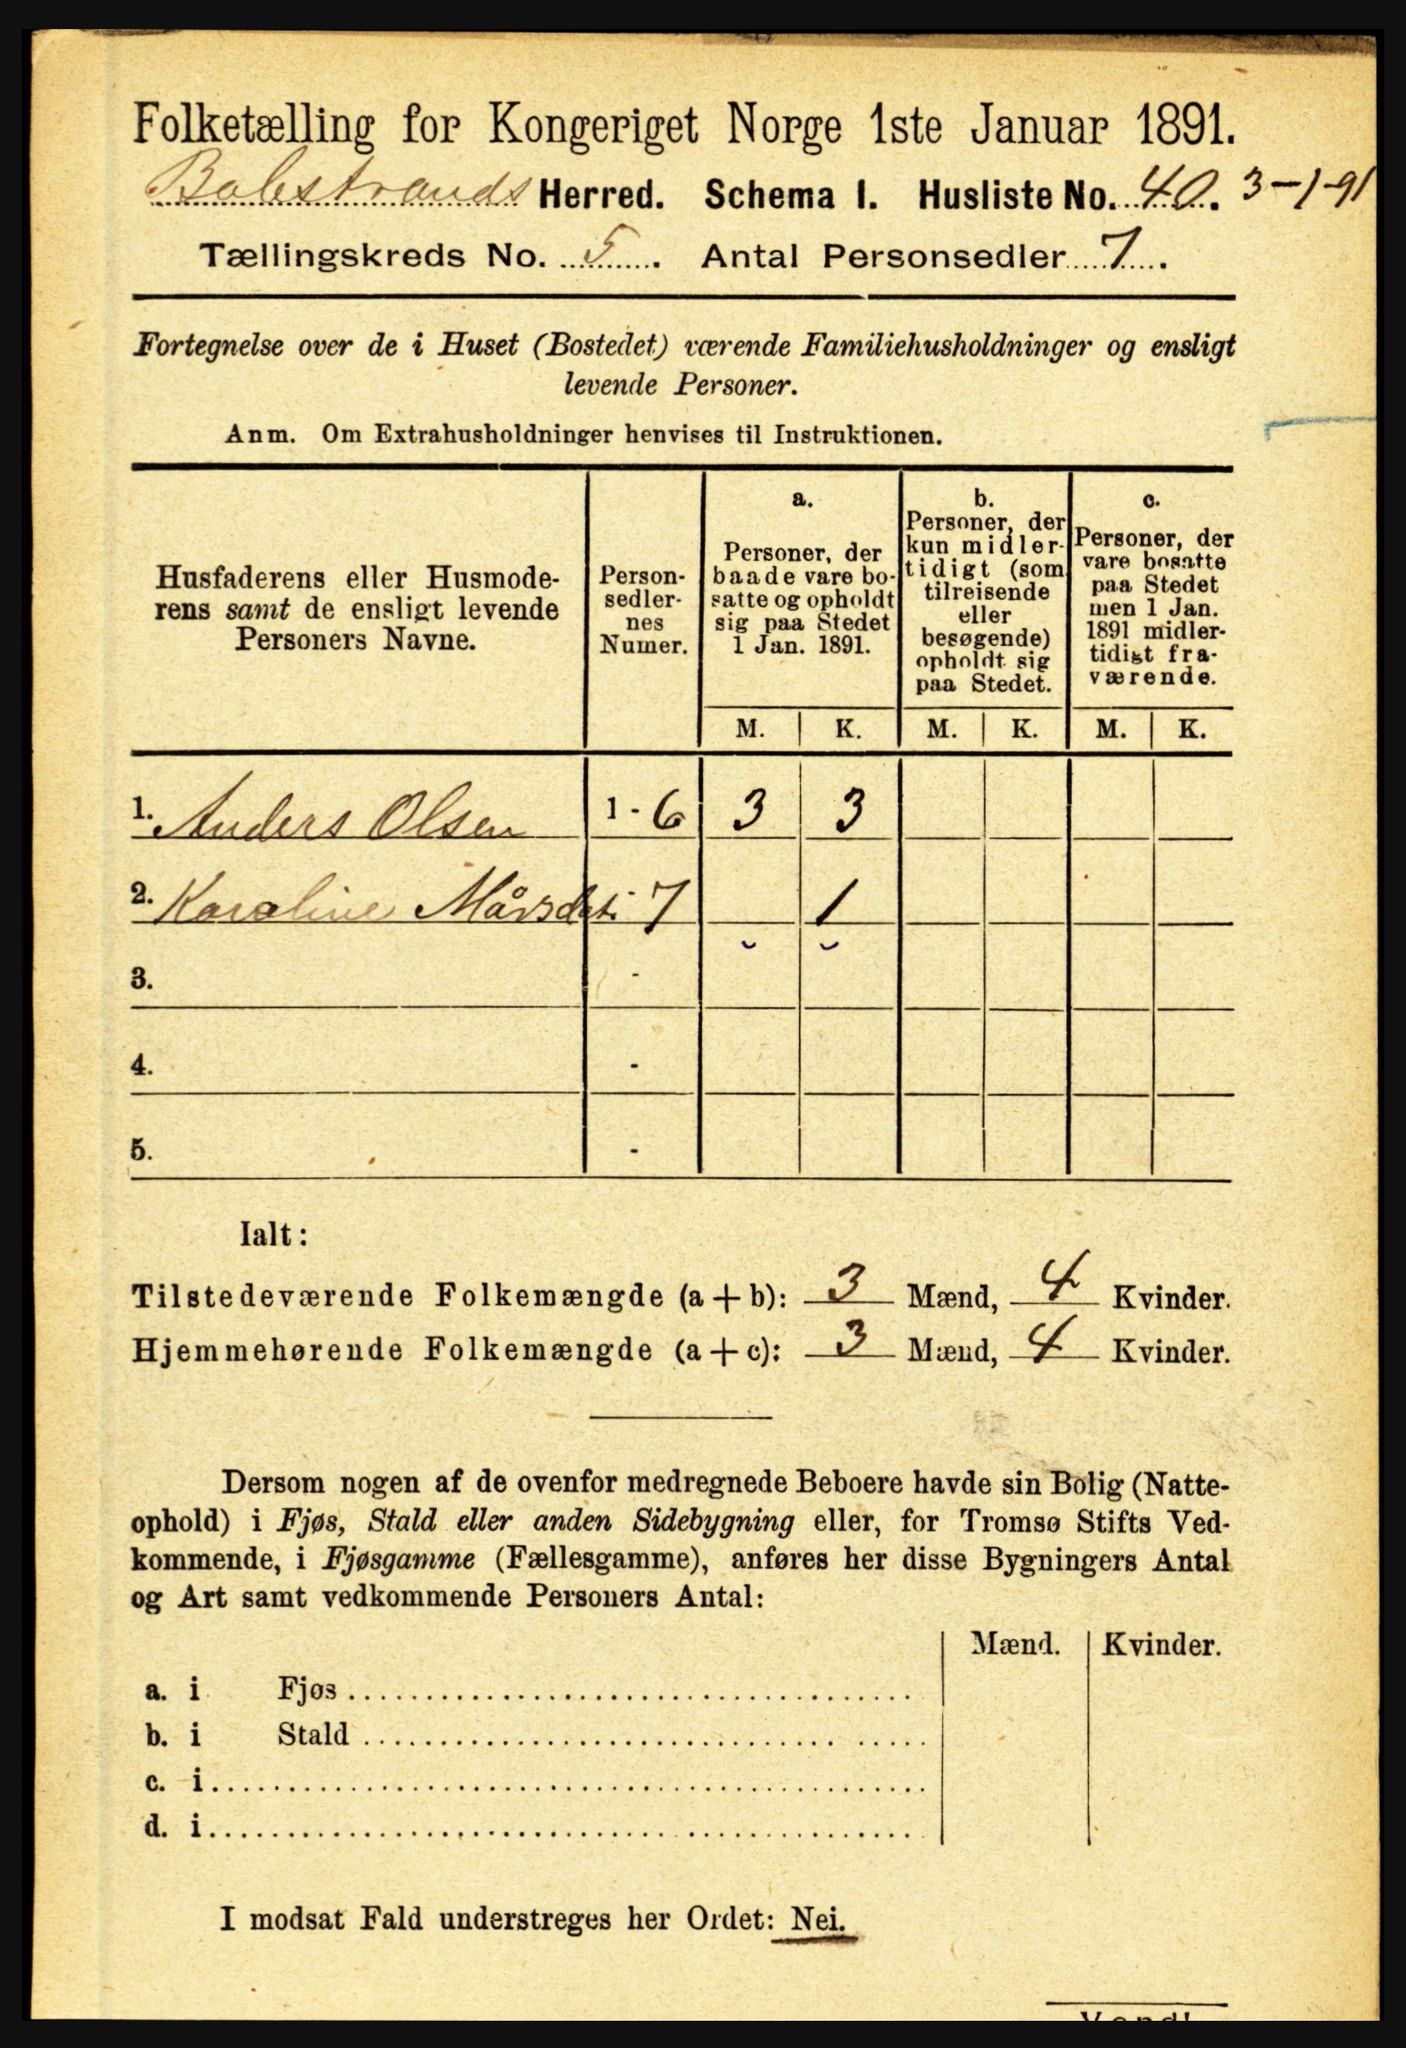 Folketælling for Kongeriget Norge 1ste Januar 1891.
Balestrands Herred. Schema 1. Husliste No. 40. 3-1-91
Tællingskreds No. 5. Antal Personsedler 7.
Fortegnelse over de i Huset (Bostedet) værende Familiehusholdninger og ensligt
levende Personer.
Anm. Om Extrahusholdninger henvises til Instruktionen.
Husfaderens eller Husmode-
rens samt de ensligt levende
Personers Navne.
Person-
sedler-
nes
Numer.
a.
Personer, der
baade vare bo-
satte og opholdt
sig paa Stedet
1 Jan. 1891.
b.
Personer, der
kun midler-
tidigt (som
tilreisende
eller
besøgende)
opholdt sig
paa Stedet.
c.
Personer, der
vare bosatte
paa Stedet
men 1 Jan.
1891 midler-
tidigt fra-
værende.
M. K. M. K. M. K.
1. Anders Olsen 1 - 6 3 3
2. Karoline 7 1
3. -
4. -
5. -
Ialt:
Tilstedeværende Folkemængde (a + b): 3 Mænd, 4 Kvinder.
Hjemmehørende Folkemængde (a + c): 3 Mænd, 4 Kvinder.
Dersom nogen af de ovenfor medregnede Beboere havde sin Bolig (Natte-
ophold) i Fjøs, Stald eller anden Sidebygning eller, for Tromsø Stifts Ved-
kommende, i Fjøsgamme (Fællesgamme), anføres her disse Bygningers Antal
og Art samt vedkommende Personers Antal:
Mænd. Kvinder.
a. i Fjøs
b. i Stald
c. i
d. i
I modsat Fald understreges her Ordet: Nei.